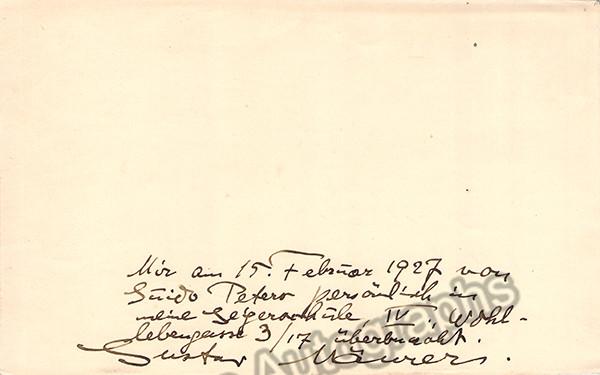 Mir am 15. Februar 1927 von
Guido Peters persönlich in
meine Geigerschule, IV., Wohl-
lebengasse 3/17 überbracht.
Gustav
Autographs